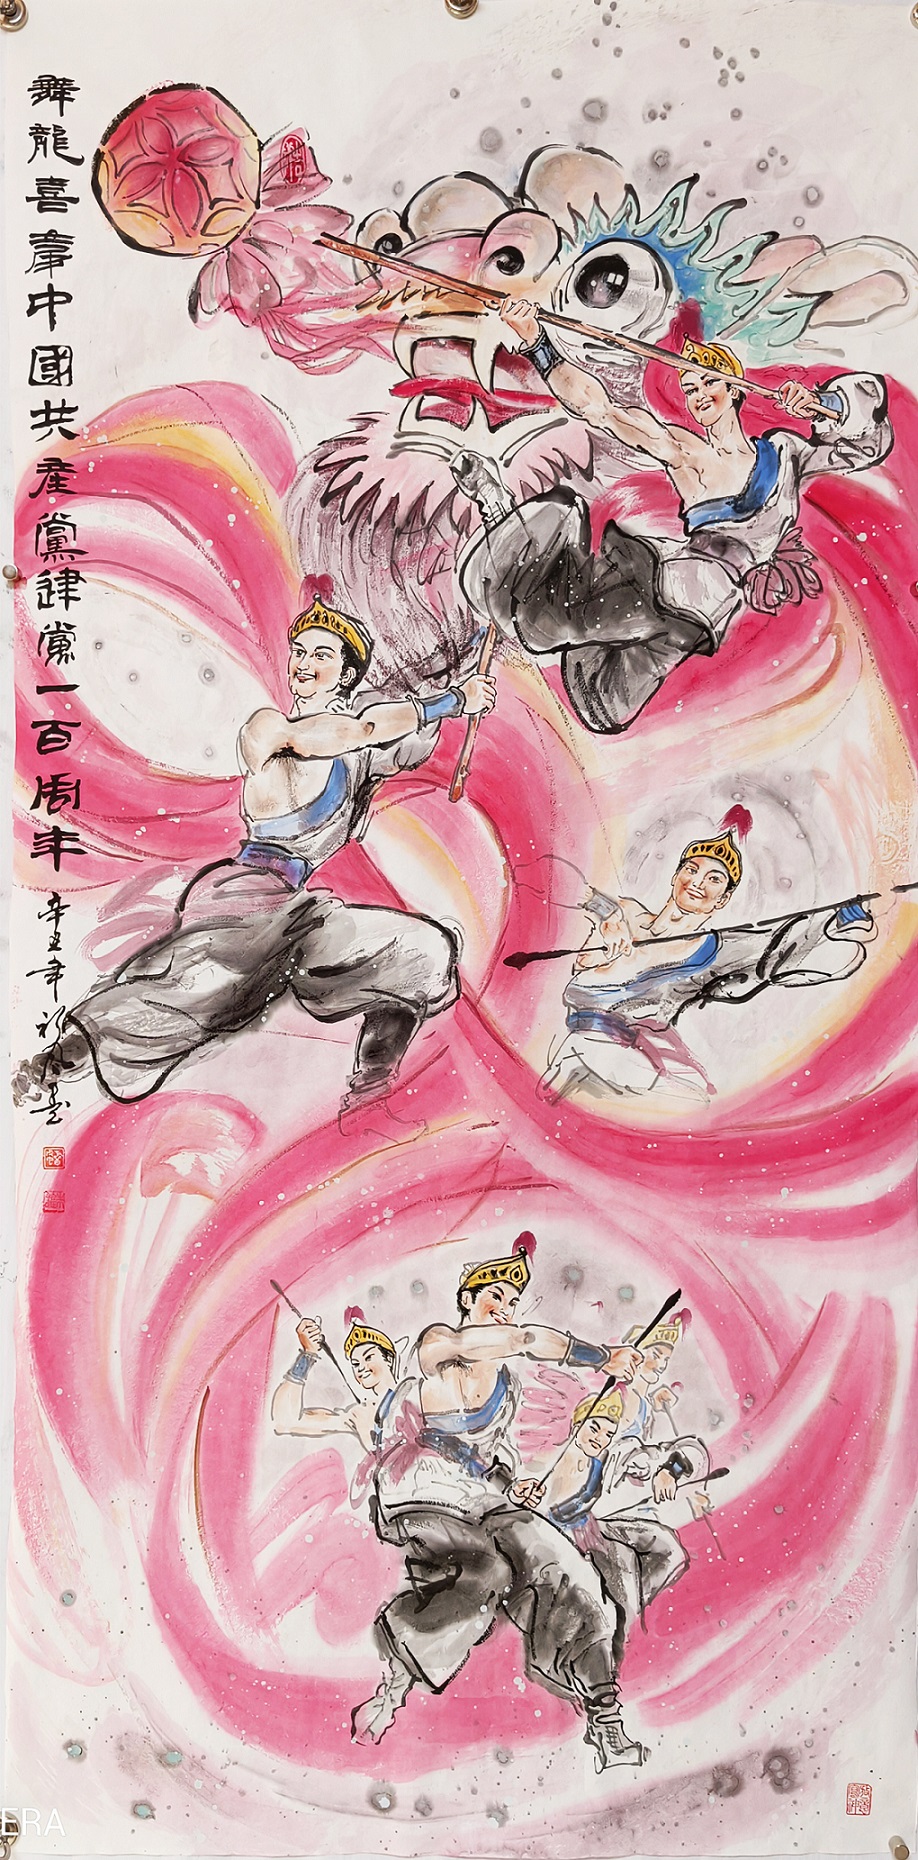 舞龍喜慶中國共產黨建黨一百周年
辛丑年
ERA